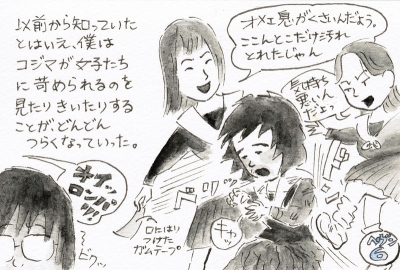 以前から知っていた
とはいえ、僕は
コジマが女子たち
に苛められるのを
見たりきいたりする
ことが、どんどん
つらくなっていった。
オメェ息がくさいんだよう。
ここんとこだけ汚れ
とれたじゃん
気持ち
悪いん
だよ?
キャッ
口にはり
つけた
ガムテープ。
ロンパ
ビクッ
ヘヴン
6